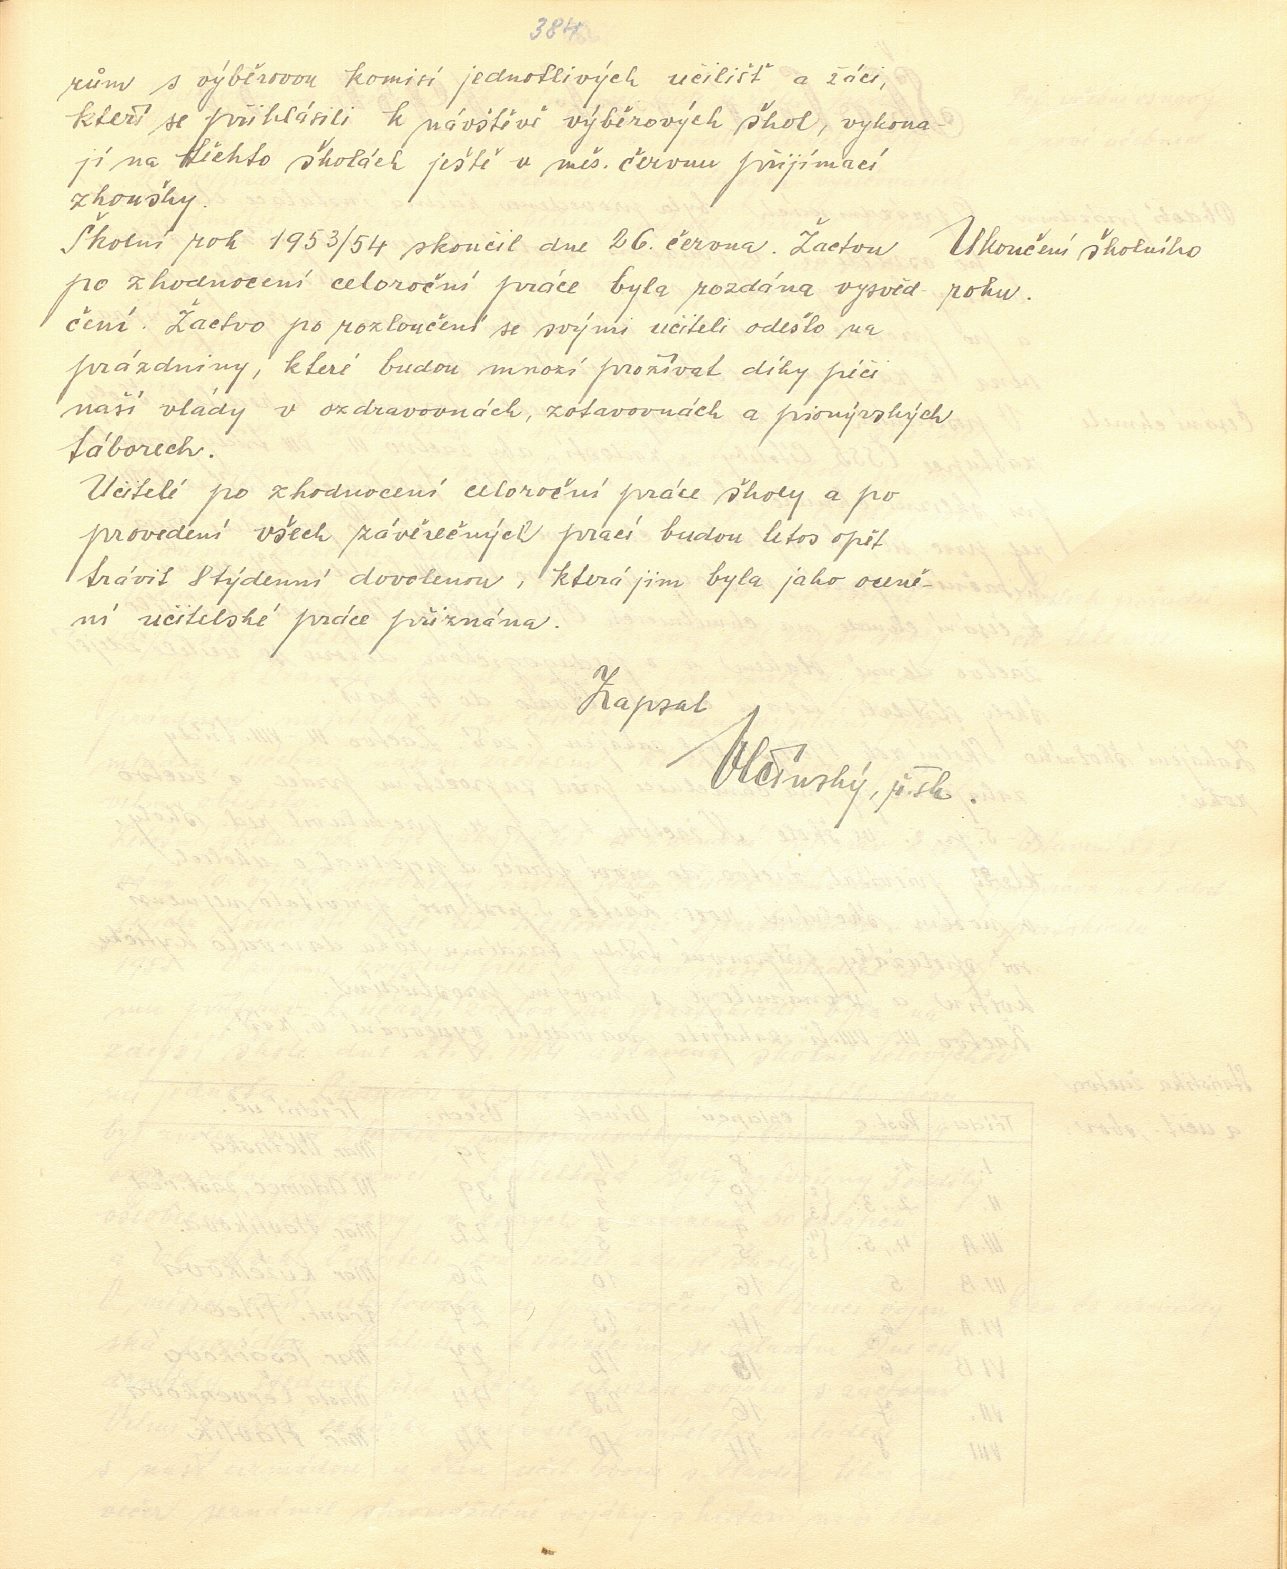 384
rům s výběrovou komisí jednotlivých učilišť a žáci,
kteří se přihlásili k návštěvě výběrových škol, vykona-
jí na těchto školách ještě v měs. červnu přijímací
zkoušky.
Školní rok 1953/54 skončil dne 26. června. Žactvu
Ukončení školního
po zhodnocení celoroční práce byla rozdána vysvěd-
roku.
čení. Žactvo po rozloučení se svými učiteli odešlo na
prázdniny, které budou mnozí prožívat díky péči
naší vlády v ozdravovnách, zotavovnách a pionýrských
táborech.
Učitelé po zhodnocení celoroční práce školy a po
provedení všech závěrečných prací budou letos opět
trávit 8týdenní dovolenou, která jim byla jako oceně-
ní učitelské práce přiznána.
Zapsal